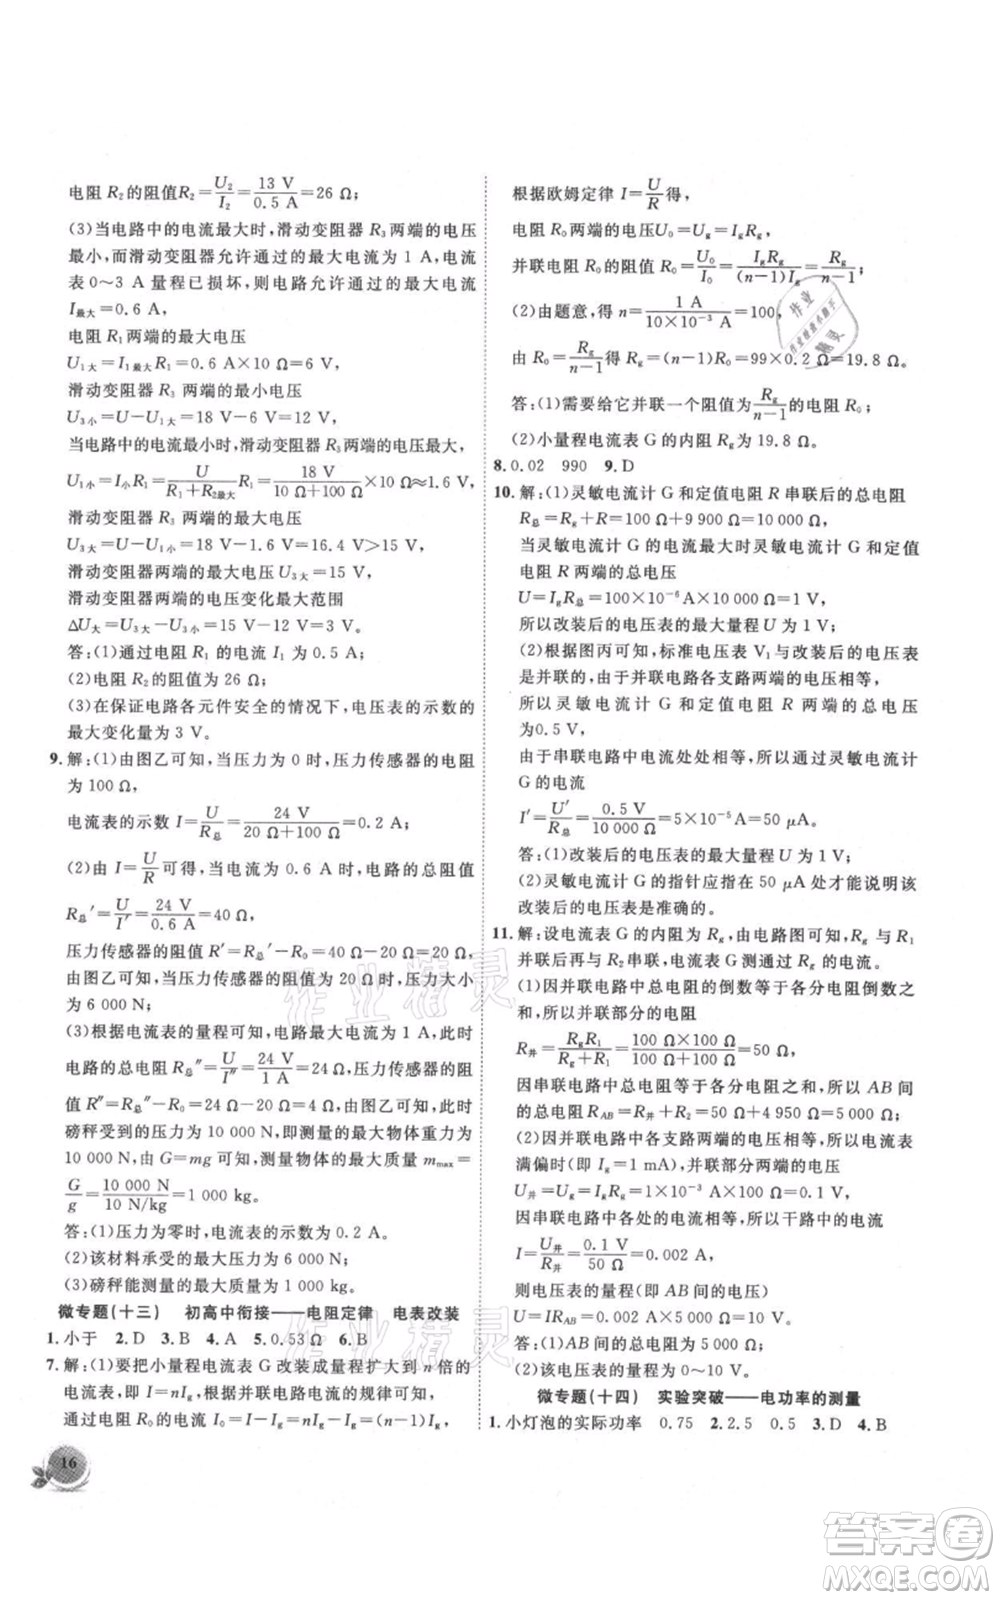 电阻 R₂的阻值R₂=U₂/I₂=13 V/0.5 A=26 Ω;
(3)当电路中的电流最大时,滑动变阻器 R₃两端的电压
最小,而滑动变阻器允许通过的最大电流为 1 A,电流
表 0~3 A 量程已损坏,则电路允许通过的最大电流
I最大=0.6 A,
电阻 R₁两端的最大电压
U₁大=I₁最大R₁=0.6 A×10 Ω=6 V,
滑动变阻器 R₃ 两端的最小电压
U₃小=U-U₁大=18 V-6 V=12 V,
当电路中的电流最小时,滑动变阻器 R₃两端的电压最大,
U₁小=I小R₁=U/(R₁+R₂最大)R₁=18 V/(10 Ω+100 Ω)×10 Ω≈1.6 V,
滑动变阻器 R₃ 两端的最大电压
U₃大=U-U₁小=18 V-1.6 V=16.4 V>15 V,
滑动变阻器两端的最大电压 U₃大=15 V,
滑动变阻器两端的电压变化最大范围
ΔU大=U₃大-U₃小=15 V-12 V=3 V.
答:(1)通过电阻 R₁ 的电流 I 为 0.5 A;
(2)电阻 R₂ 的阻值为 26 Ω;
(3)在保证电路各元件安全的情况下,电压表的示数的
最大变化量为 3 V.
9. 解:(1)由图乙可知,当压力为 0 时,压力传感器的电阻
为 100 Ω,
电流表的示数 I=U/R总=24 V/(20 Ω+100 Ω)=0.2 A;
(2)由 I=U/R可得,当电流为 0.6 A 时,电路的总阻值
R总′=U/I′=24 V/0.6 A=40 Ω,
压力传感器的阻值 R′=R总′-R₀=40 Ω-20 Ω=20 Ω,
由图乙可知,当压力传感器的阻值为 20 Ω 时,压力大小
为 6 000 N;
(3)根据电流表的量程可知,电路最大电流为 1 A,此时
电路的总电阻 R总″=U/I″=24 V/1 A=24 Ω,压力传感器的阻
值 R″=R总″-R₀=24 Ω-20 Ω=4 Ω,由图乙可知,此时
磅秤受到的压力为 10 000 N,即测量物体的最大重力为
10 000 N,由 G=mg 可知,测量物体的最大质量 mmax=
G/g=10 000 N/10 N/kg=1 000 kg。
答:(1)压力为零时,电流表的示数为 0.2 A;
(2)该材料承受的最大压力为 6 000 N;
(3)磅秤能测量的最大质量为 1 000 kg。
微专题(十三) 初高中衔接——电阻定律 电表改装
1.小于 2.D 3.B 4.A 5.0.53Ω 6.B
7. 解:(1)要把小量程电流表 G 改装成量程扩大到 n 倍的
电流表,即 I=nIg,根据并联电路电流的规律可知,
通过电阻 R₀ 的电流为 I₀=I-Ig=nIg-Ig=(n-1)Ig,
16
根据欧姆定律 I=U/R得,
电阻 R₀两端的电压U₀=Ug=IgRg,
并联电阻 R₀的阻值 R₀=U₀/I₀=IgRg/(n-1)Ig=Rg/(n-1);
(2)由题意,得 n=1 A/10×10⁻³ A=100,
由 R₀=Rg/(n-1)得 Rg=(n-1)R₀=99×0.2 Ω=19.8 Ω。
答:(1)需要给它并联一个阻值为Rg/(n-1)的电阻 R₀;
(2)小量程电流表 G 的内阻 Rg为 19.8 Ω。
8.0.02 990 9.D
10. 解:(1)灵敏电流计 G 和定值电阻 R 串联后的总电阻
R总=Rg+R=100 Ω+9 900 Ω=10 000 Ω,
当灵敏电流计 G 的电流最大时灵敏电流计 G 和定值
电阻 R 两端的总电压
U=IgR总=100×10⁻⁶A×10 000 Ω=1 V,
所以改装后的电压表的最大量程 U 为 1 V;
(2)根据图丙可知,标准电压表 V₁与改装后的电压表
是并联的,由于并联电路各支路两端的电压都相等,
所以灵敏电流计 G 和定值电阻 R 两端的总电压
为0.5 V,
由于串联电路中电流处处相等,所以通过灵敏电流计
G 的电流
I′=U′/R总=0.5 V/10 000 Ω=5×10⁻⁵A=50 μA.
答:(1)改装后的电压表的最大量程 U 为 1 V;
(2)灵敏电流计 G 的指针应指在 50 μA 处才能说明该
改装后的电压表是准确的。
11. 解:设电流表 G 的内阻为 Rg,由电路图可知,Rg与 R₁
并联后再与 R₂串联,电流表 G 测通过 Rg的电流。
(1)因并联电路中总电阻的倒数等于各分电阻倒数之
和,所以并联部分的电阻
R并=RgR₁/(Rg+R₁)=100 Ω×100 Ω/(100 Ω+100 Ω)=50 Ω,
因串联电路中总电阻等于各分电阻之和,所以 AB 间
的总电阻 RAB=R并+R₂=50 Ω+4 950 Ω=5 000 Ω;
(2)因并联电路中各支路两端的电压相等,所以电流表
满偏时(即 Ig=1 mA),并联部分两端的电压
U并=Ug=IgRg=1×10⁻³ A×100 Ω=0.1 V,
因串联电路中各处的电流相等,所以干路中的电流
I=U并/R并=0.1 V/50 Ω=0.002 A,
则电压表的量程(即 AB 间的电压)
U=IRAB=0.002 A×5 000 Ω=10 V。
答:(1)AB间的总电阻为 5 000 Ω;
(2)该电压表的量程为 0~10 V。
微专题(十四) 实验突破——电功率的测量
1.小灯泡的实际功率 0.75 2.2.5 0.5 3.D 4.B
作业精灵
作业精灵
答案圈
MXQE.COM